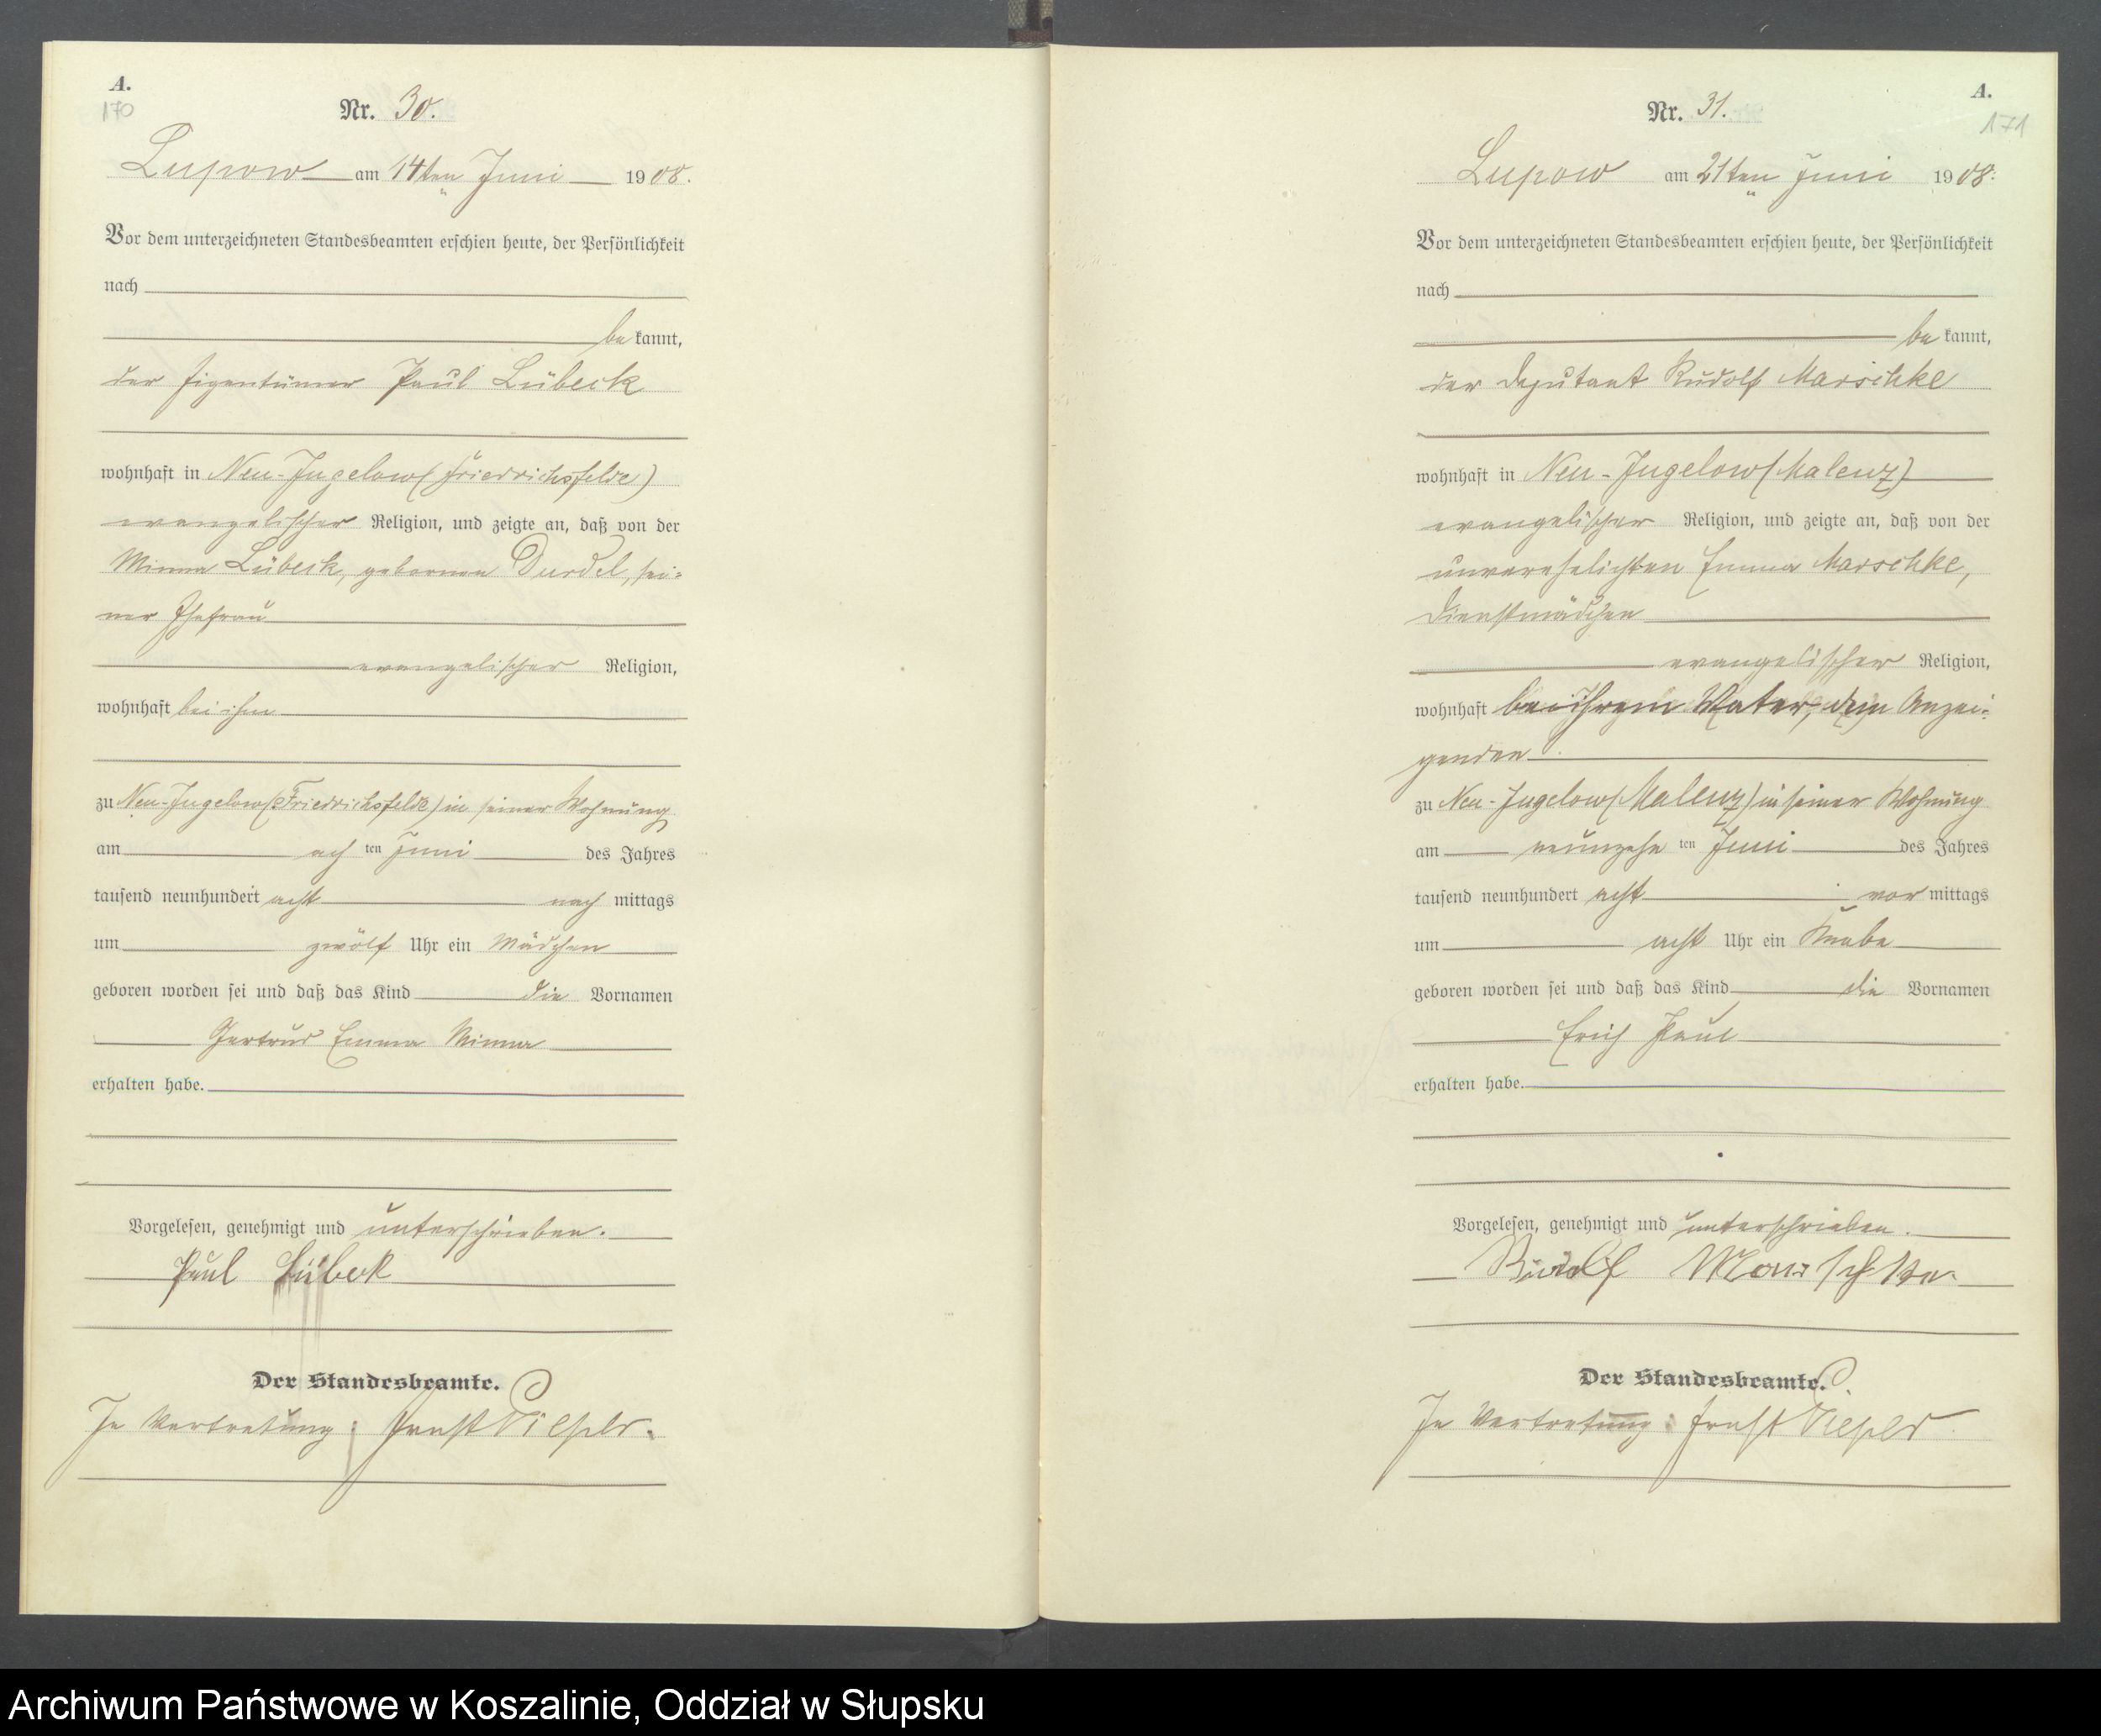 A.
170
Nr. 30.
Lupow am 14ten Juni 1908.
Vor dem unterzeichneten Standesbeamten erschien heute, der Persönlichkeit
nach
be kannt,
der Eigentümer Paul Lübeck
wohnhaft in Neu-Jugelow (Friedrichsfelde)
evangelischer Religion, und zeigte an, daß von der
Minna Lübeck, geborenen Durdel, sei-
ner Ehefrau
evangelischer Religion,
wohnhaft bei ihm
zu Neu-Jugelow (Friedrichsfelde) in seiner Wohnung
am ach ten Juni des Jahres
tausend neunhundert acht nach mittags
um zwölf Uhr ein Mädchen
geboren worden sei und daß das Kind die Vornamen
Gertrud Emma Minna
erhalten habe.
Vorgelesen, genehmigt und unterschrieben.
Paul Lübeck
Der Standesbeamte.
In Vertretung: Ernst Pieper.
A.
171
Nr. 31.
Lupow am 21ten Juni 1908.
Vor dem unterzeichneten Standesbeamten erschien heute, der Persönlichkeit
nach
be kannt,
der Deputant Rudolf Marschke
wohnhaft in Neu-Jugelow (Malenz)
evangelischer Religion, und zeigte an, daß von der
unverehelichten Emma Marschke,
Dienstmädchen
evangelischer Religion,
wohnhaft bei ihrem Vater, dem Anzei-
genden
zu Neu-Jugelow (Malenz) in seiner Wohnung
am neunzehn ten Juni des Jahres
tausend neunhundert acht vor mittags
um acht Uhr ein Knabe
geboren worden sei und daß das Kind die Vornamen
Erich Paul
erhalten habe.
Vorgelesen, genehmigt und unterschrieben.
Rudolf Marschke.
Der Standesbeamte.
In Vertretung: Ernst Pieper.
Archiwum Państwowe w Koszalinie, Oddział w Słupsku